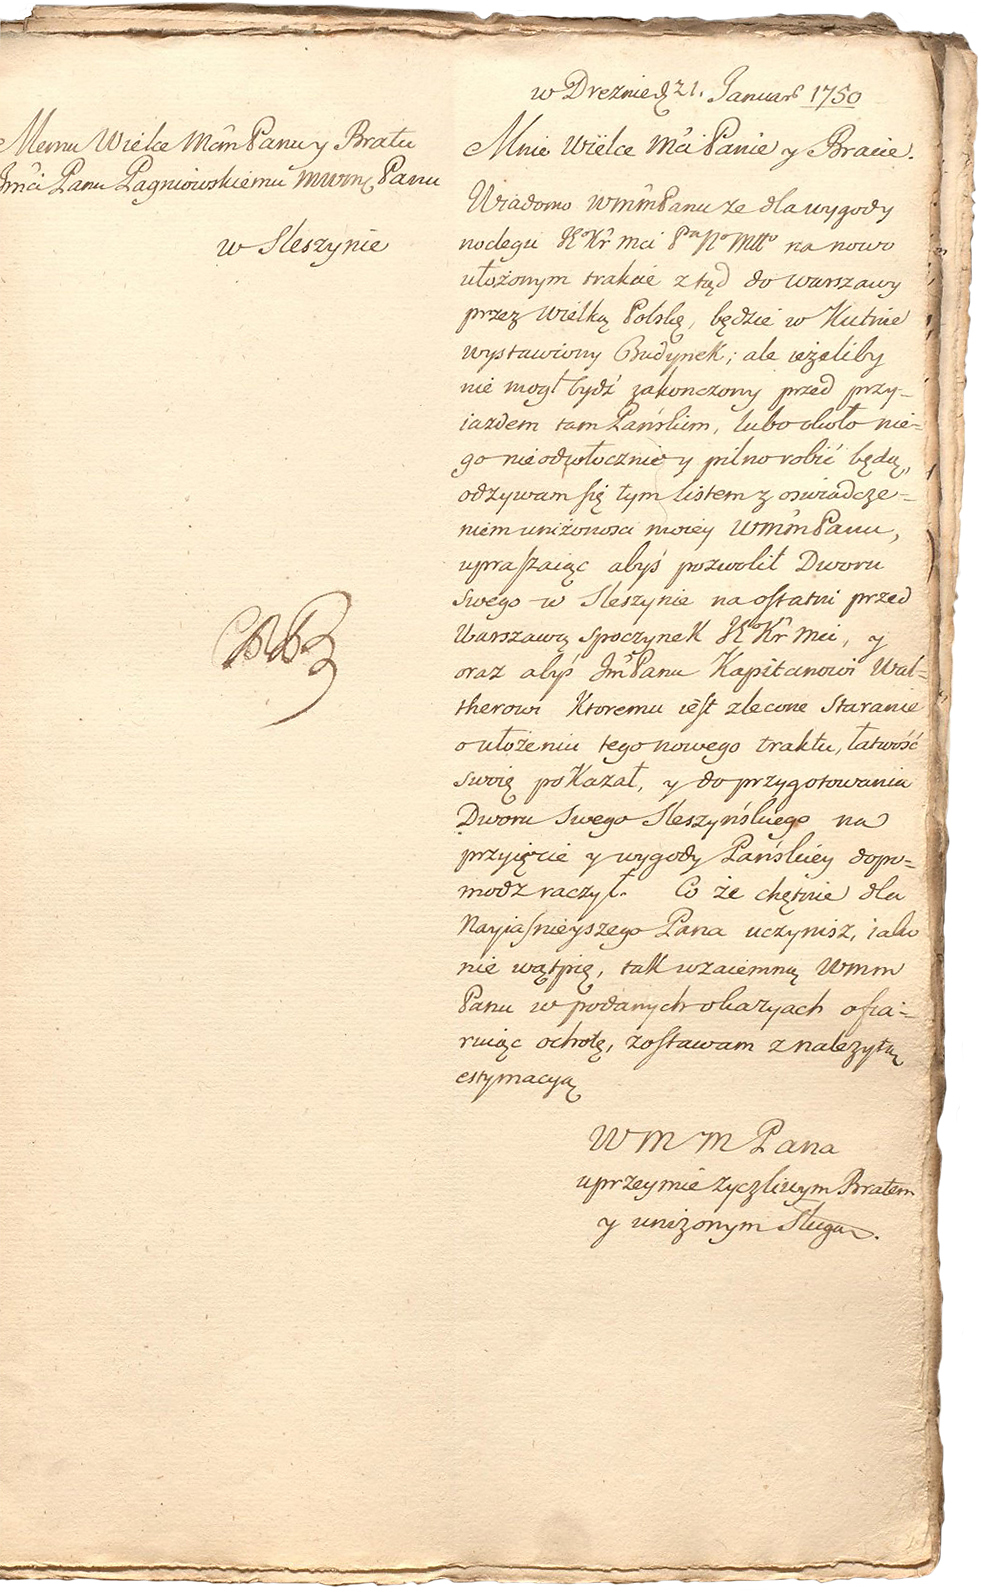 w Dreznie d. 21. Januar. 1750
Memu Wielce Mćm Panu y Bratu
Jmći Panu Łagniowskiemu Panu
w Sleszynie
Mnie Wielce Mći Panie y Bracie.
Wiadomo WmmPanu ze dla wygody
noclegu JKKr mci na nowo
ułożonym trakcie z tąd do Warszawy
przez Wielką Polskę, będzie w Kutnie
wystawiony Budynek; ale ieżeliby
nie mogł bydź zakonczony przed przy-
iazdem tam Pańskim, lubo około nie-
go nieodwłocznie y pilno robić będą,
odzywam się tym listem z oswiadcze-
niem unizonosci moiey WmmPanu,
upraszaiąc abyś pozwolił Dworu
swego w Sleszynie na ostatni przed
Warszawą spoczynek JKKr mci, y
oraz abyś JmPanu Kapitanowi Wal-
therowi Ktoremu iest zlecone staranie
o ułożeniu tego nowego traktu, łatwość
swoię poKazał, y do przygotowania
Dworu swego Sleszyńskiego na
przyięcie y wygody Pańskiey dopo-
modz raczył. Co że chętnie dla
Nayiasnieyszego Pana uczynisz, iako
nie wątpię, tak wzaiemną Wmm
Panu w podanych okazyach ofia-
ruiąc ochotę, zostawam z nalezytą
estymacyą
W M M Pana
uprzeymie zyczliwym Bratem
y unizonym Sługa.